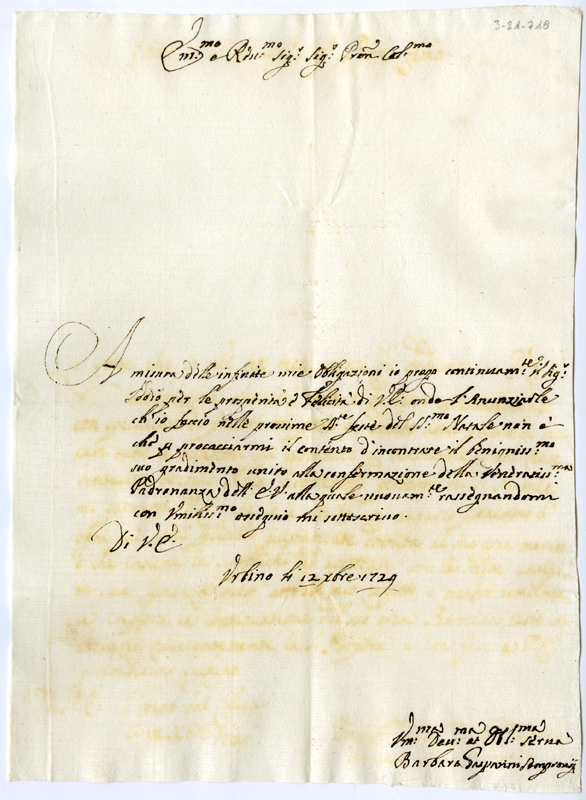 3-21-718
Em.mo e Rev.mo Sig.r Sig.r Pron Col.mo
A misura delle infinite mie obligazioni io prego continuam.te il Sig.r
Iddio per le prosperità e felicità di V.E. onde l'Anunziale
ch'io faccio nelle prossime S.te feste del SS.mo Natale non è
che p procacciarmi il contento d'incontrare il benigniss.mo
suo gradimento unito alla confermazione della Veneratiss.ma
Padronanza dell' E.V. alla quale nuovam.te rassegnandomi
con Umiliss.mo ossequio mi sottoscrivo.
Di V.E.
Urbino li 12 xbre 1729
Um.ma Dev.ma et Obl.ma Serva
Barbara Gasparini